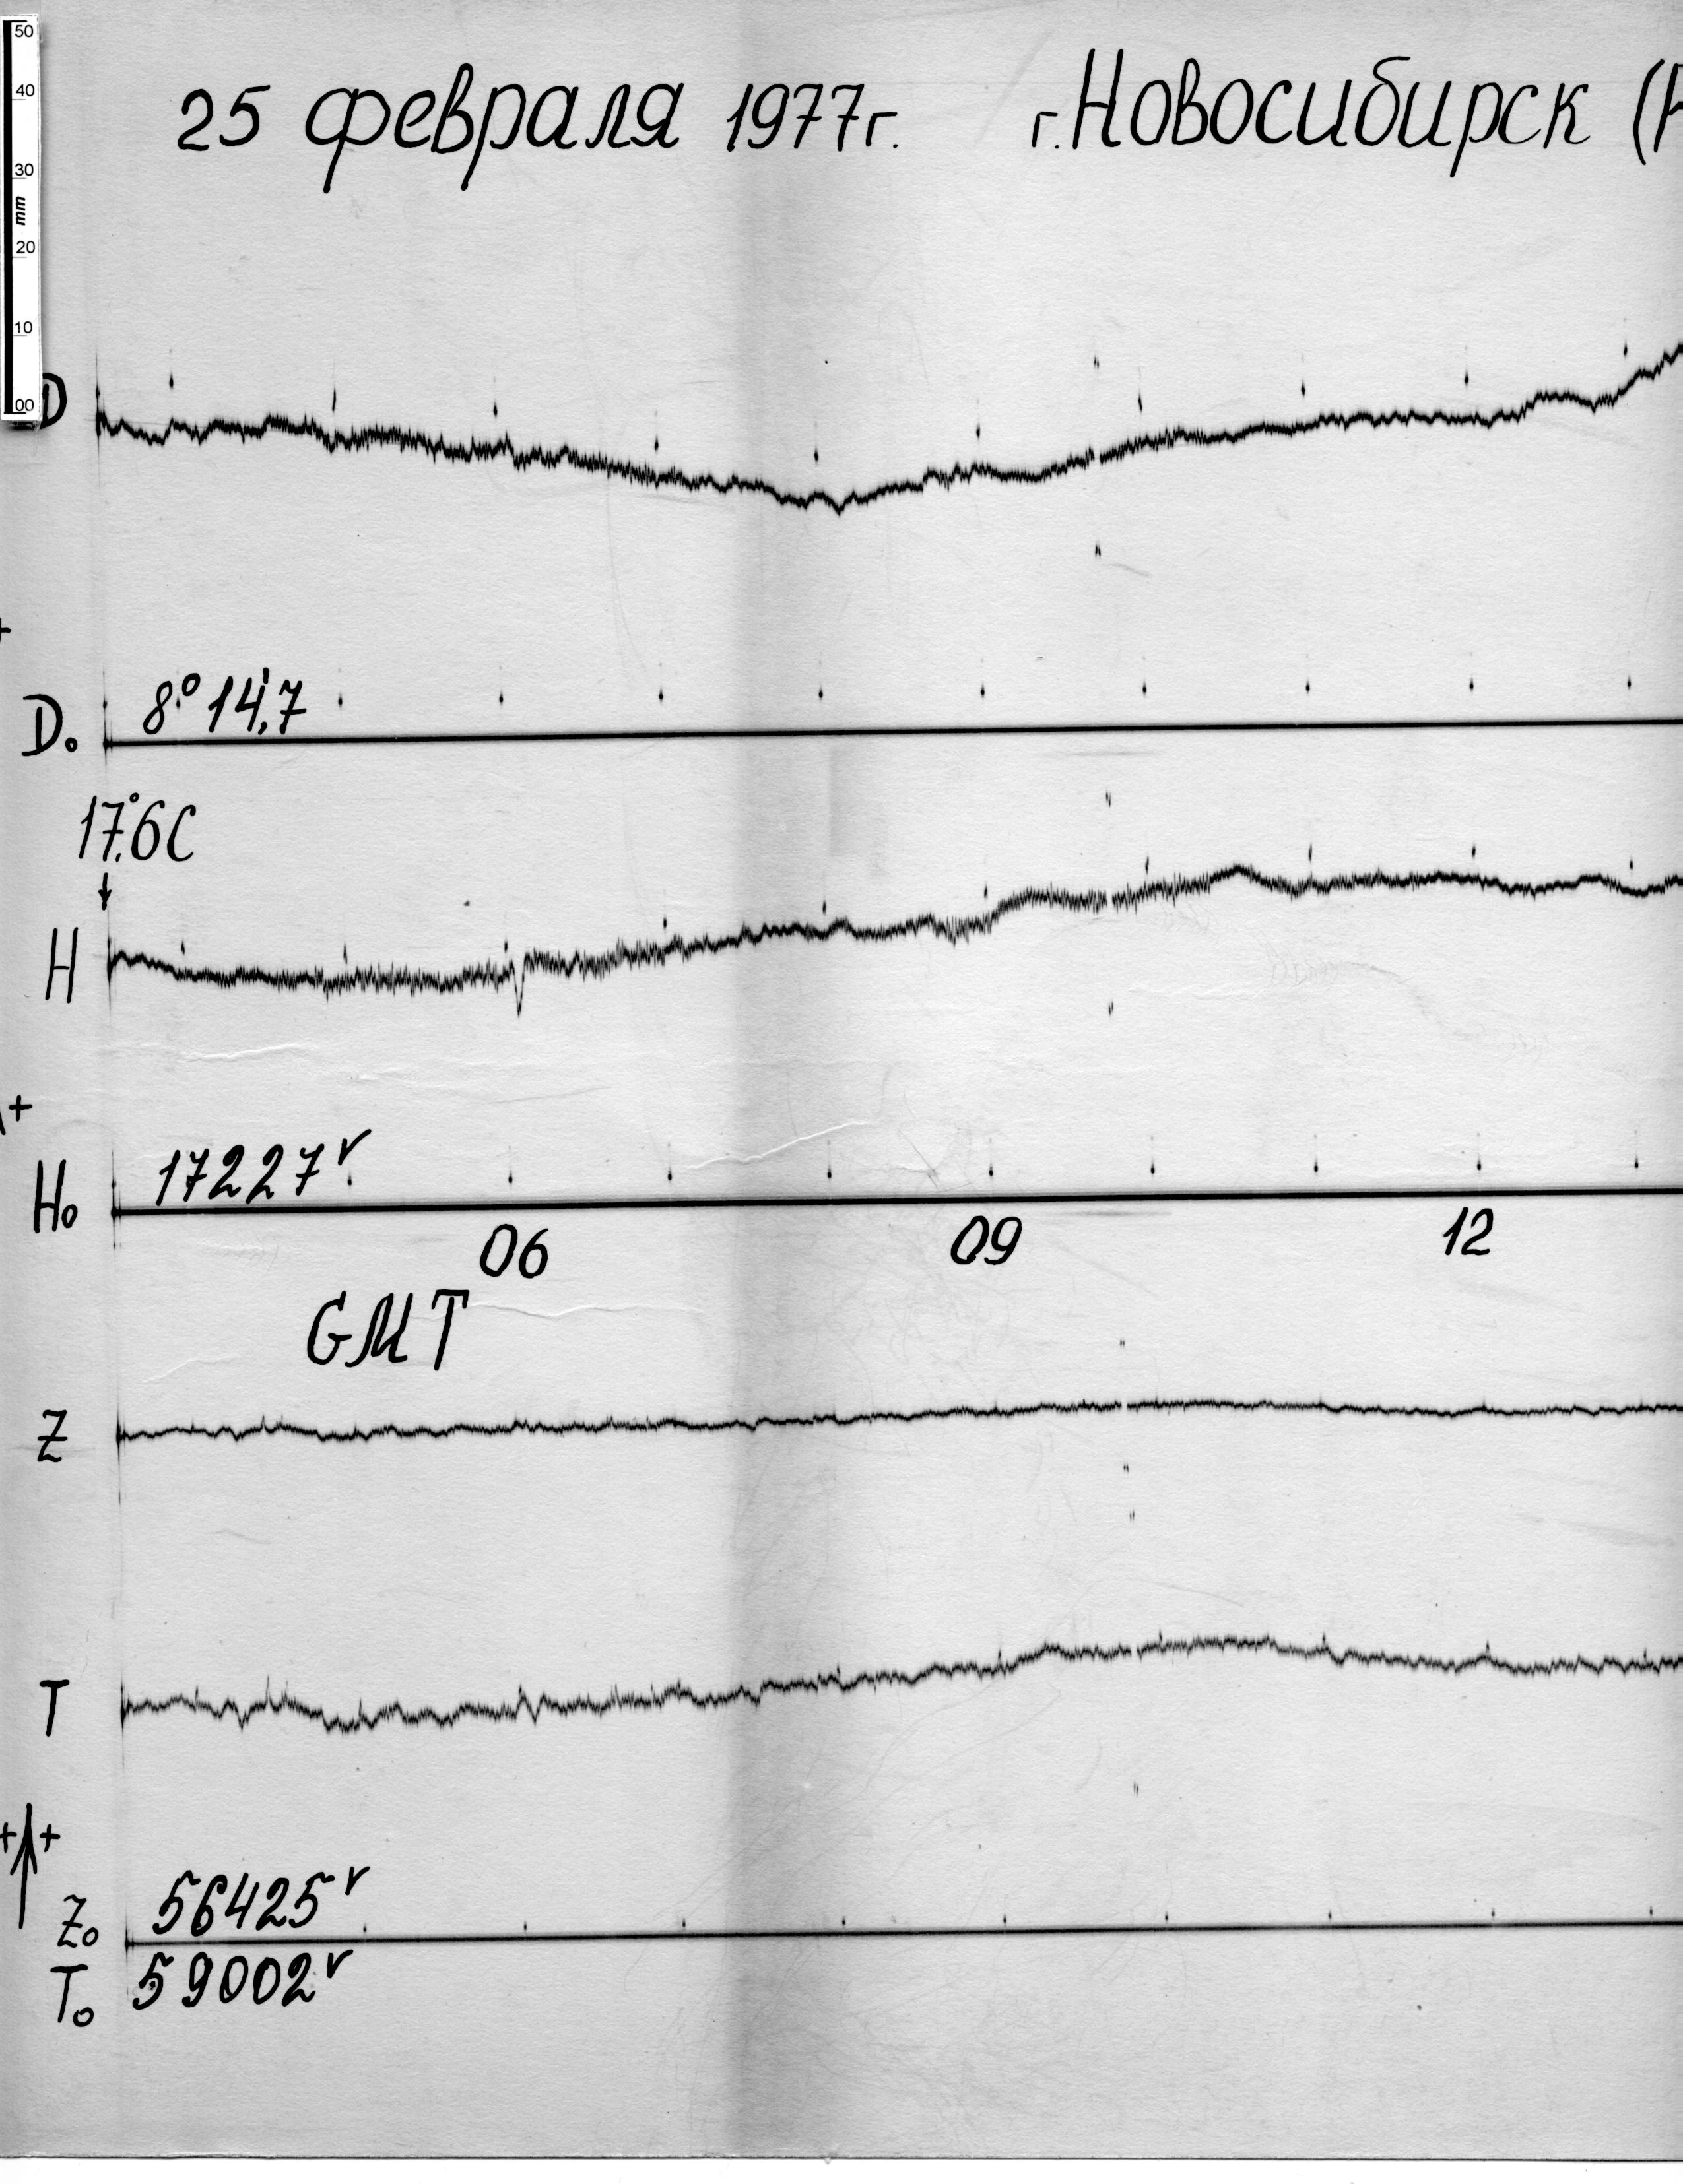 50
40
30
mm
20
10
00
25 февраля 1977г. г.Новосибирск (
D
+
D₀ 8°14,'7
17,°6С
H
+
H₀ 17227γ
06 09 12
GMT
Z
T
+ +
Z₀ 56425γ
T₀ 59002γ